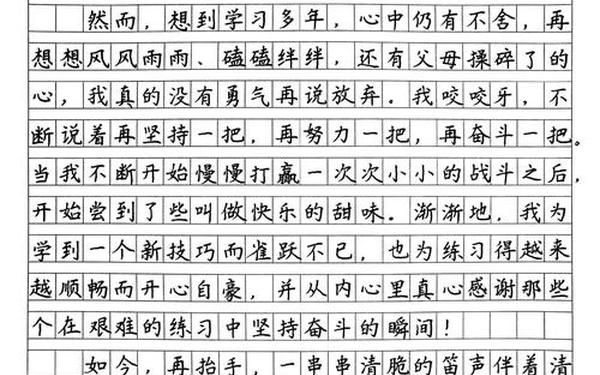 然而，想到学习多年，心中仍有不舍，再
想想风风雨雨、磕磕绊绊，还有父母操碎了的
心，我真的没有勇气再说放弃。我咬咬牙，不
断说着再坚持一把，再努力一把，再奋斗一把。
当我不断开始慢慢打赢一次次小小的战斗之后，
开始尝到了些叫做快乐的甜味。渐渐地，我为
学到一个新技巧而雀跃不已，也为练习得越来
越顺畅而开心自豪，并从内心里真心感谢那些
个在艰难的练习中坚持奋斗的瞬间！
如今，再抬手，一串串清脆的笛声伴着清